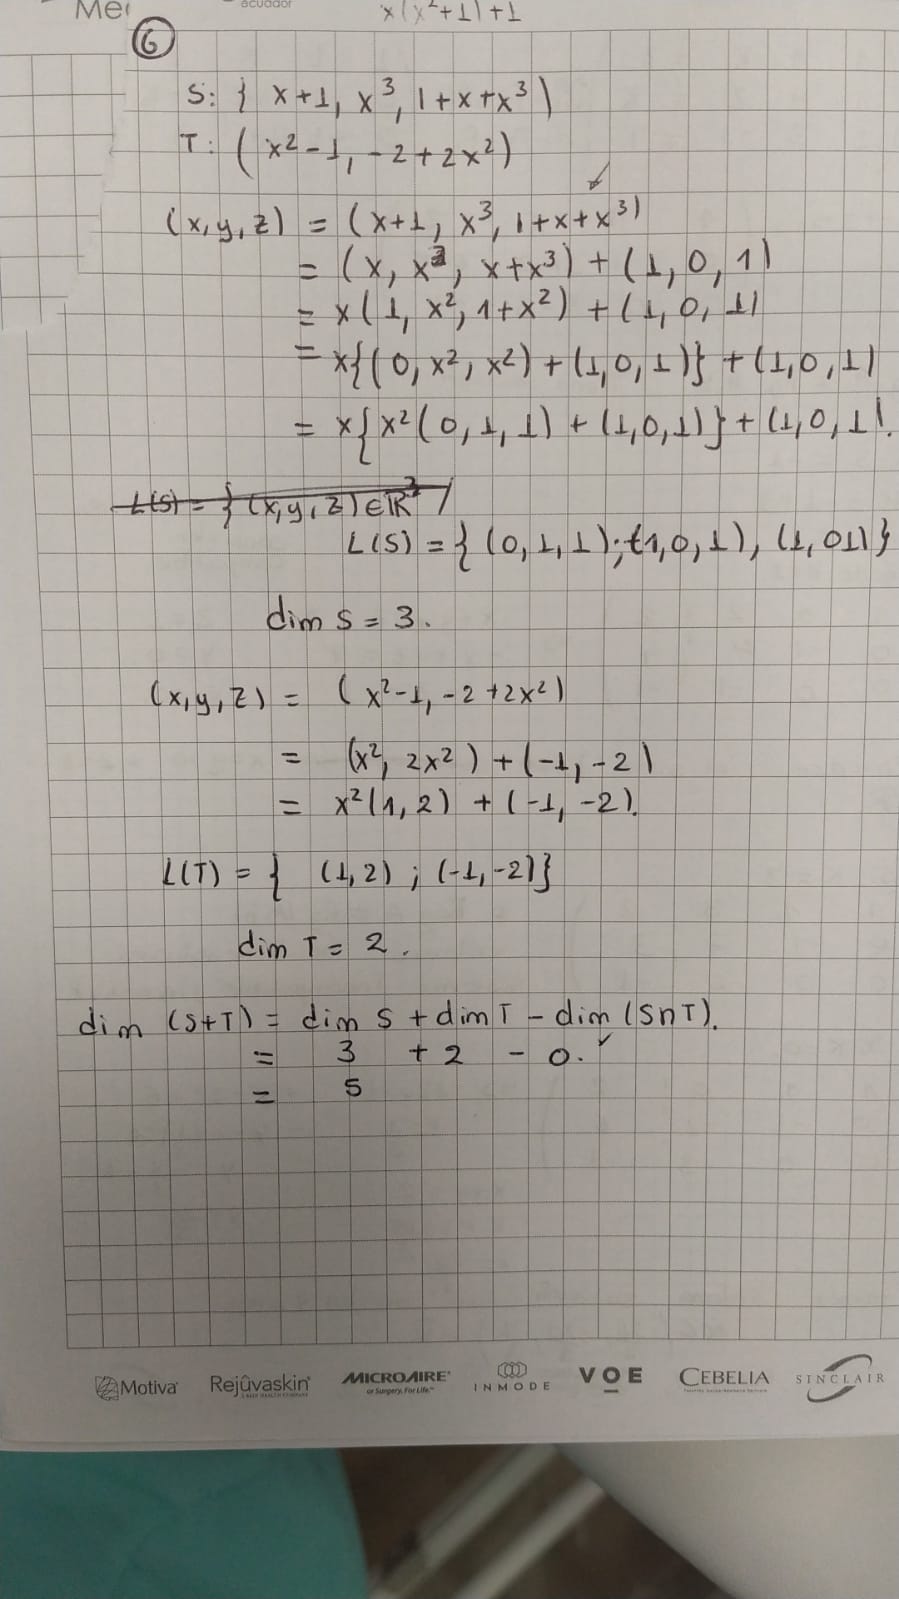 Me
ecuador
x(x²+1)+1
6
S: { x+1, x³, 1+x+x³)
T: ( x²-1, -2+2x²)
(x,y,z) = (x+1, x³, 1+x+x³)
= (x, x³, x+x³) + (1,0,1)
= x(1, x², 1+x²) + (1,0,1)
= x{(0,x²,x²)+(1,0,1)} + (1,0,1)
= x{x²(0,1,1) + (1,0,1)} + (1,0,1).
L(S) = { (x,y,z) ∈ ℝ³ /
L(S) = { (0,1,1); (1,0,1), (1,01)}
dim S = 3.
(x,y,z) = (x²-1, -2+2x²)
= (x², 2x²) + (-1,-2)
= x²(1,2) + (-1,-2).
L(T) = { (1,2) ; (-1,-2)}
dim T = 2.
dim (S+T) = dim S + dim T - dim (S∩T).
= 3 + 2 - 0.
= 5
Motiva Rejûvaskin MICROAIRE INMODE VOE CEBELIA SINCLAIR
or Surgery. For Life.